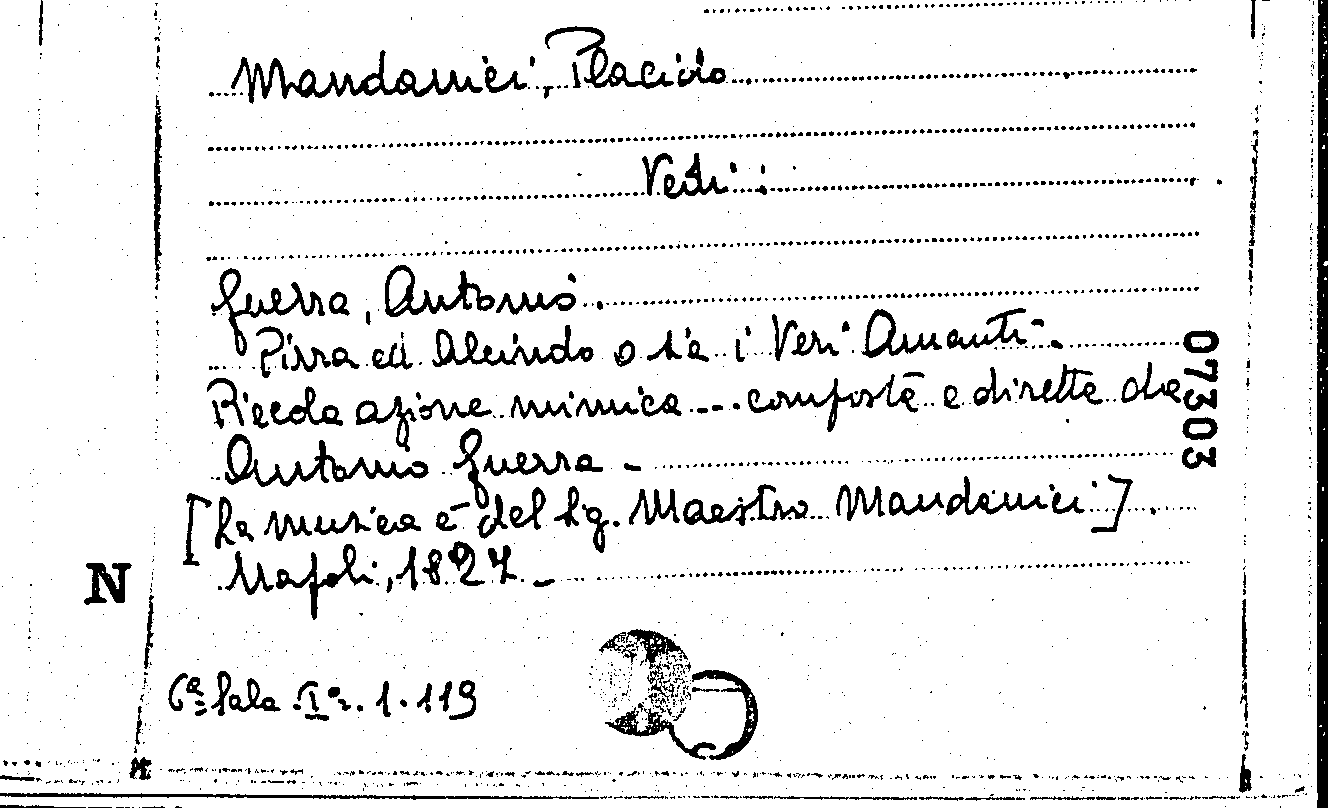 Mandanici, Placido.
Vedi:
Guerra, Antonio.
Pirra ed Alcindo o sia i Veri Amanti.
Piccola azione mimica... composta e diretta da
Antonio Guerra -
[La musica è del Sig. Maestro Mandanici].
Napoli, 1827 -
N
07303
6ª Sala I. 1.119